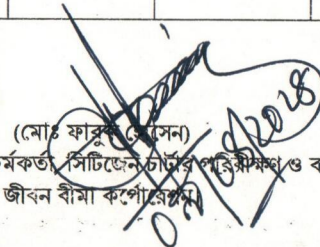 (মোঃ ফারুক হোসেন)
র্মকর্তা, সিটিজেন চার্টার পরিবীক্ষণ ও ব
জীবন বীমা কর্পোরেশন